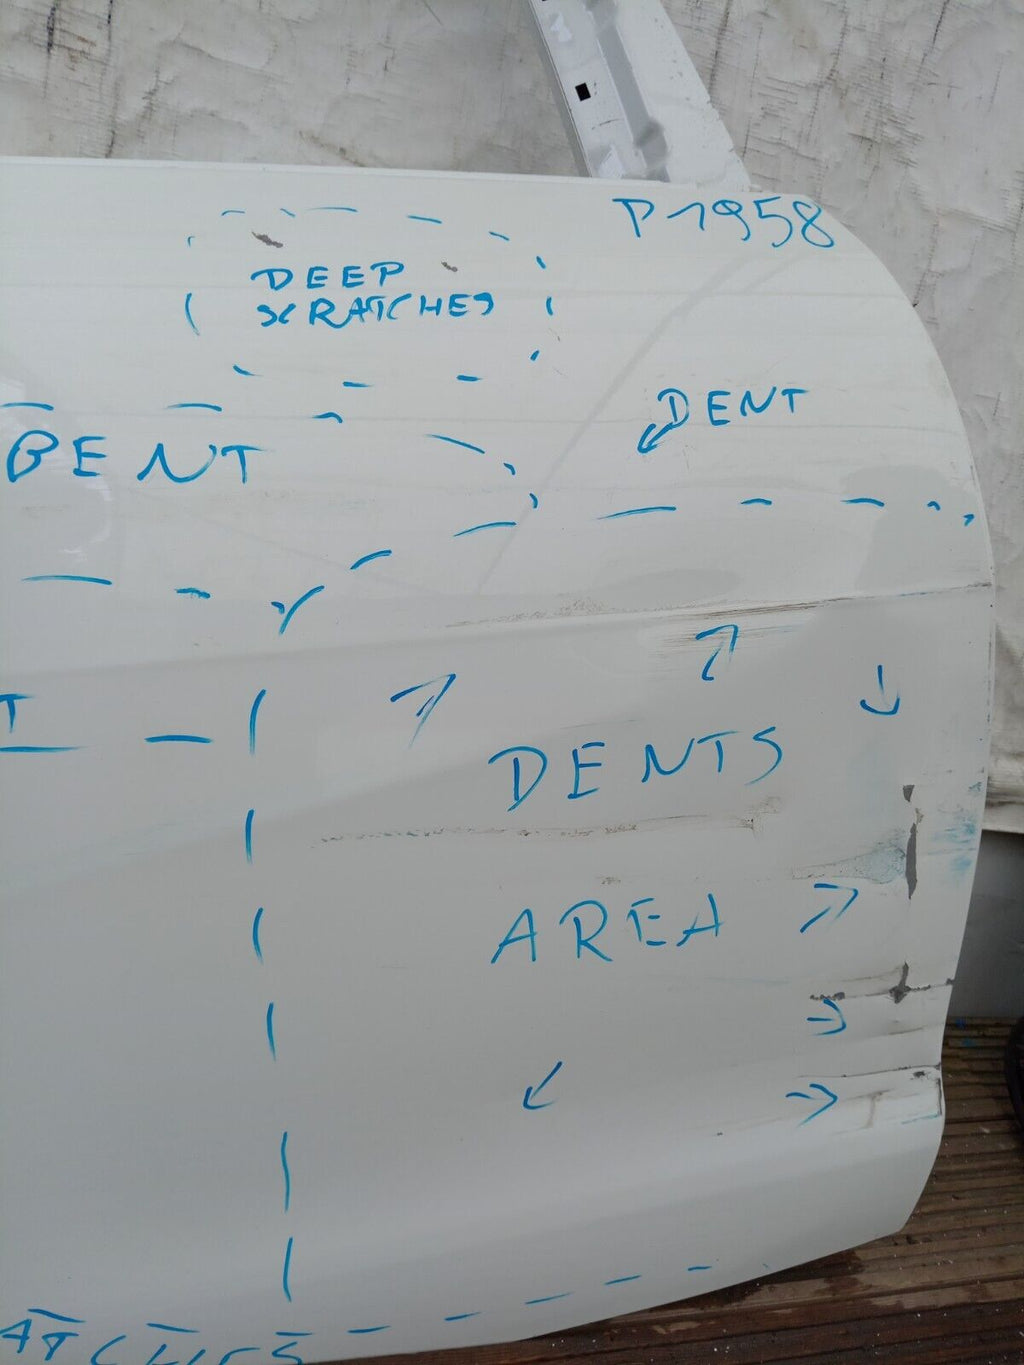 P1958
DEEP
SCRATCHES
DENT
BENT
DENTS
AREA